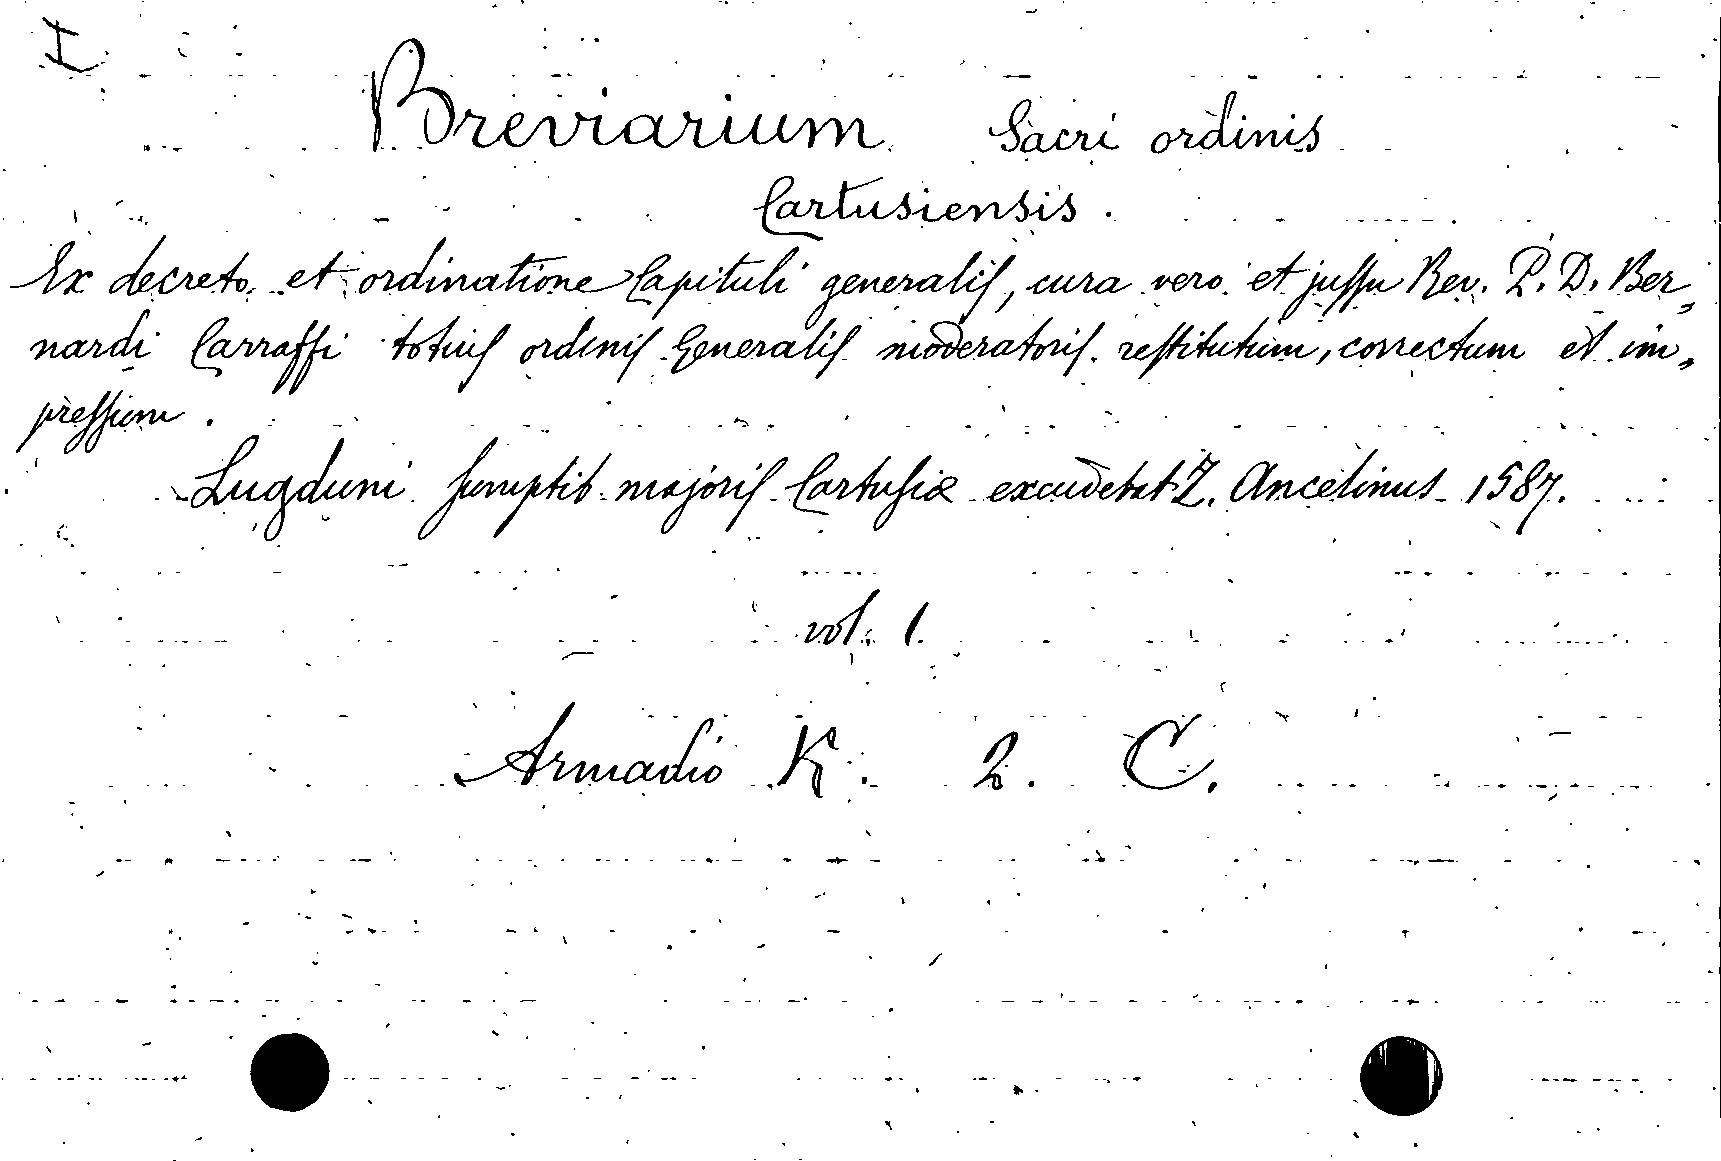 I
Breviarium Sacri ordinis
Cartusiensis.
Ex decreto et ordinatione Capituli generalis, cura vero et jussu Rev. P. D. Ber„
nardi Carraffi totius ordinis Generalis moderatoris restitutum, correctum et im„
pressum.
Lugduni sumptib. majoris Cartusiæ excudebat Z. Ancelinus 1587.
vol. 1.
Armadio K. 2. C.